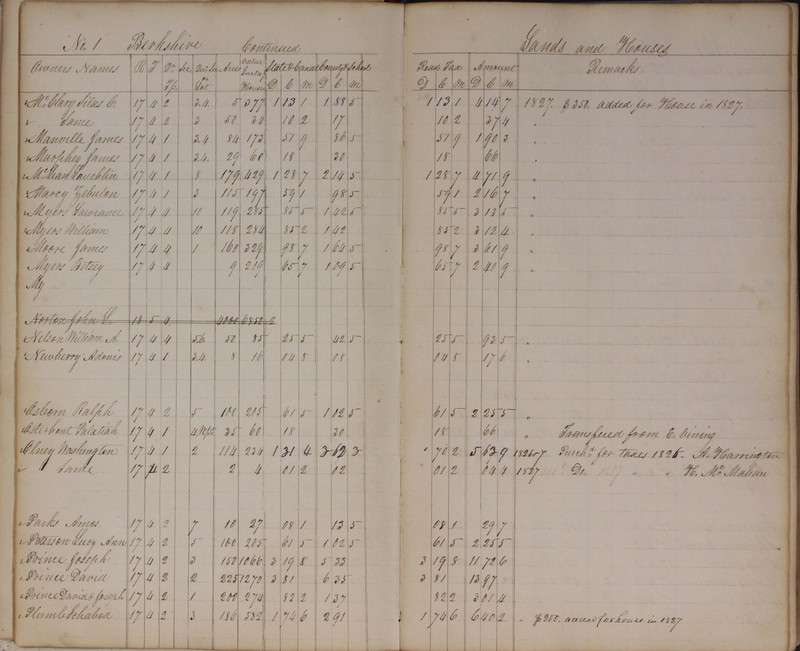 No. 1 Berkshire Continued Lands and Houses
Owners Names R T Qr Sec Lot Acres State & Canal County & School Road Tax Amount Remarks
D C M D C M D C M D C M
McClary Silas C. 17 4 2 3.4 5 377 1 13 1 1 88 5 1 13 1 4 14 7 1827. $350. added for House in 1827.
Same 17 4 2 3 50 34 10 2 17 10 2 37 4 "
Manville James 17 4 1 3.4 84 173 51 9 86 5 51 9 1 90 3 "
Murphey James 17 4 1 3.4. 29 60 18 30 18 66 "
17 4 1 8 179 429 1 28 7 2 14 5 1 28 7 4 71 9 "
Marcy Zebulon 17 4 1 3 115 197 59 1 98 5 59 1 2 16 7 "
Myers Lawrance 17 4 4 10 119 285 85 5 1 42 5 85 5 3 13 5 "
Myers William 17 4 4 10 118 284 85 2 1 42 85 2 3 12 4 "
Moore James 17 4 1 1 160 329 98 7 1 64 5 98 7 3 61 9 "
Myers Betsey 17 4 4 9 219 65 7 1 09 5 65 7 2 40 9 "
My
Norton John 18 5 4 4000 6850 2
Nelson William A 17 4 4 56 50 85 25 5 42 5 25 5 93 5 "
Newberry Adonis 17 4 1 3.4 8 16 04 8 08 04 8 17 6 "
Osborn Ralph 17 4 2 5 100 205 61 5 1 02 5 61 5 2 25 5 "
17 4 1 35 60 18 30 18 66 " Transferred from E. Vining
Olney Washington 17 4 1 2 114 234 1 31 4 3 62 3 70 2 5 63 9 1826&7 Purchd for taxes 1826. A. Harrington
" Same 17 4 2 2 4 01 2 02 01 2 04 4 1827 Do. " " H. McMahan
Parks Amos 17 4 2 7 10 27 08 1 13 5 08 1 29 7
Patterson Lucy Ann 17 4 2 5 100 205 61 5 1 02 5 61 5 2 25 5
Prince Joseph 17 4 2 3 150 1066 3 19 8 5 33 3 19 8 11 72 6
Prince David 17 4 2 2 225 1270 3 81 6 35 3 81 13 97
Prince David & Joseph 17 4 2 1 200 274 82 2 1 37 82 2 3 01 4
Plumb Ichabod 17 4 2 3 186 582 1 74 6 2 91 1 74 6 6 40 2 " $200. added for house in 1827